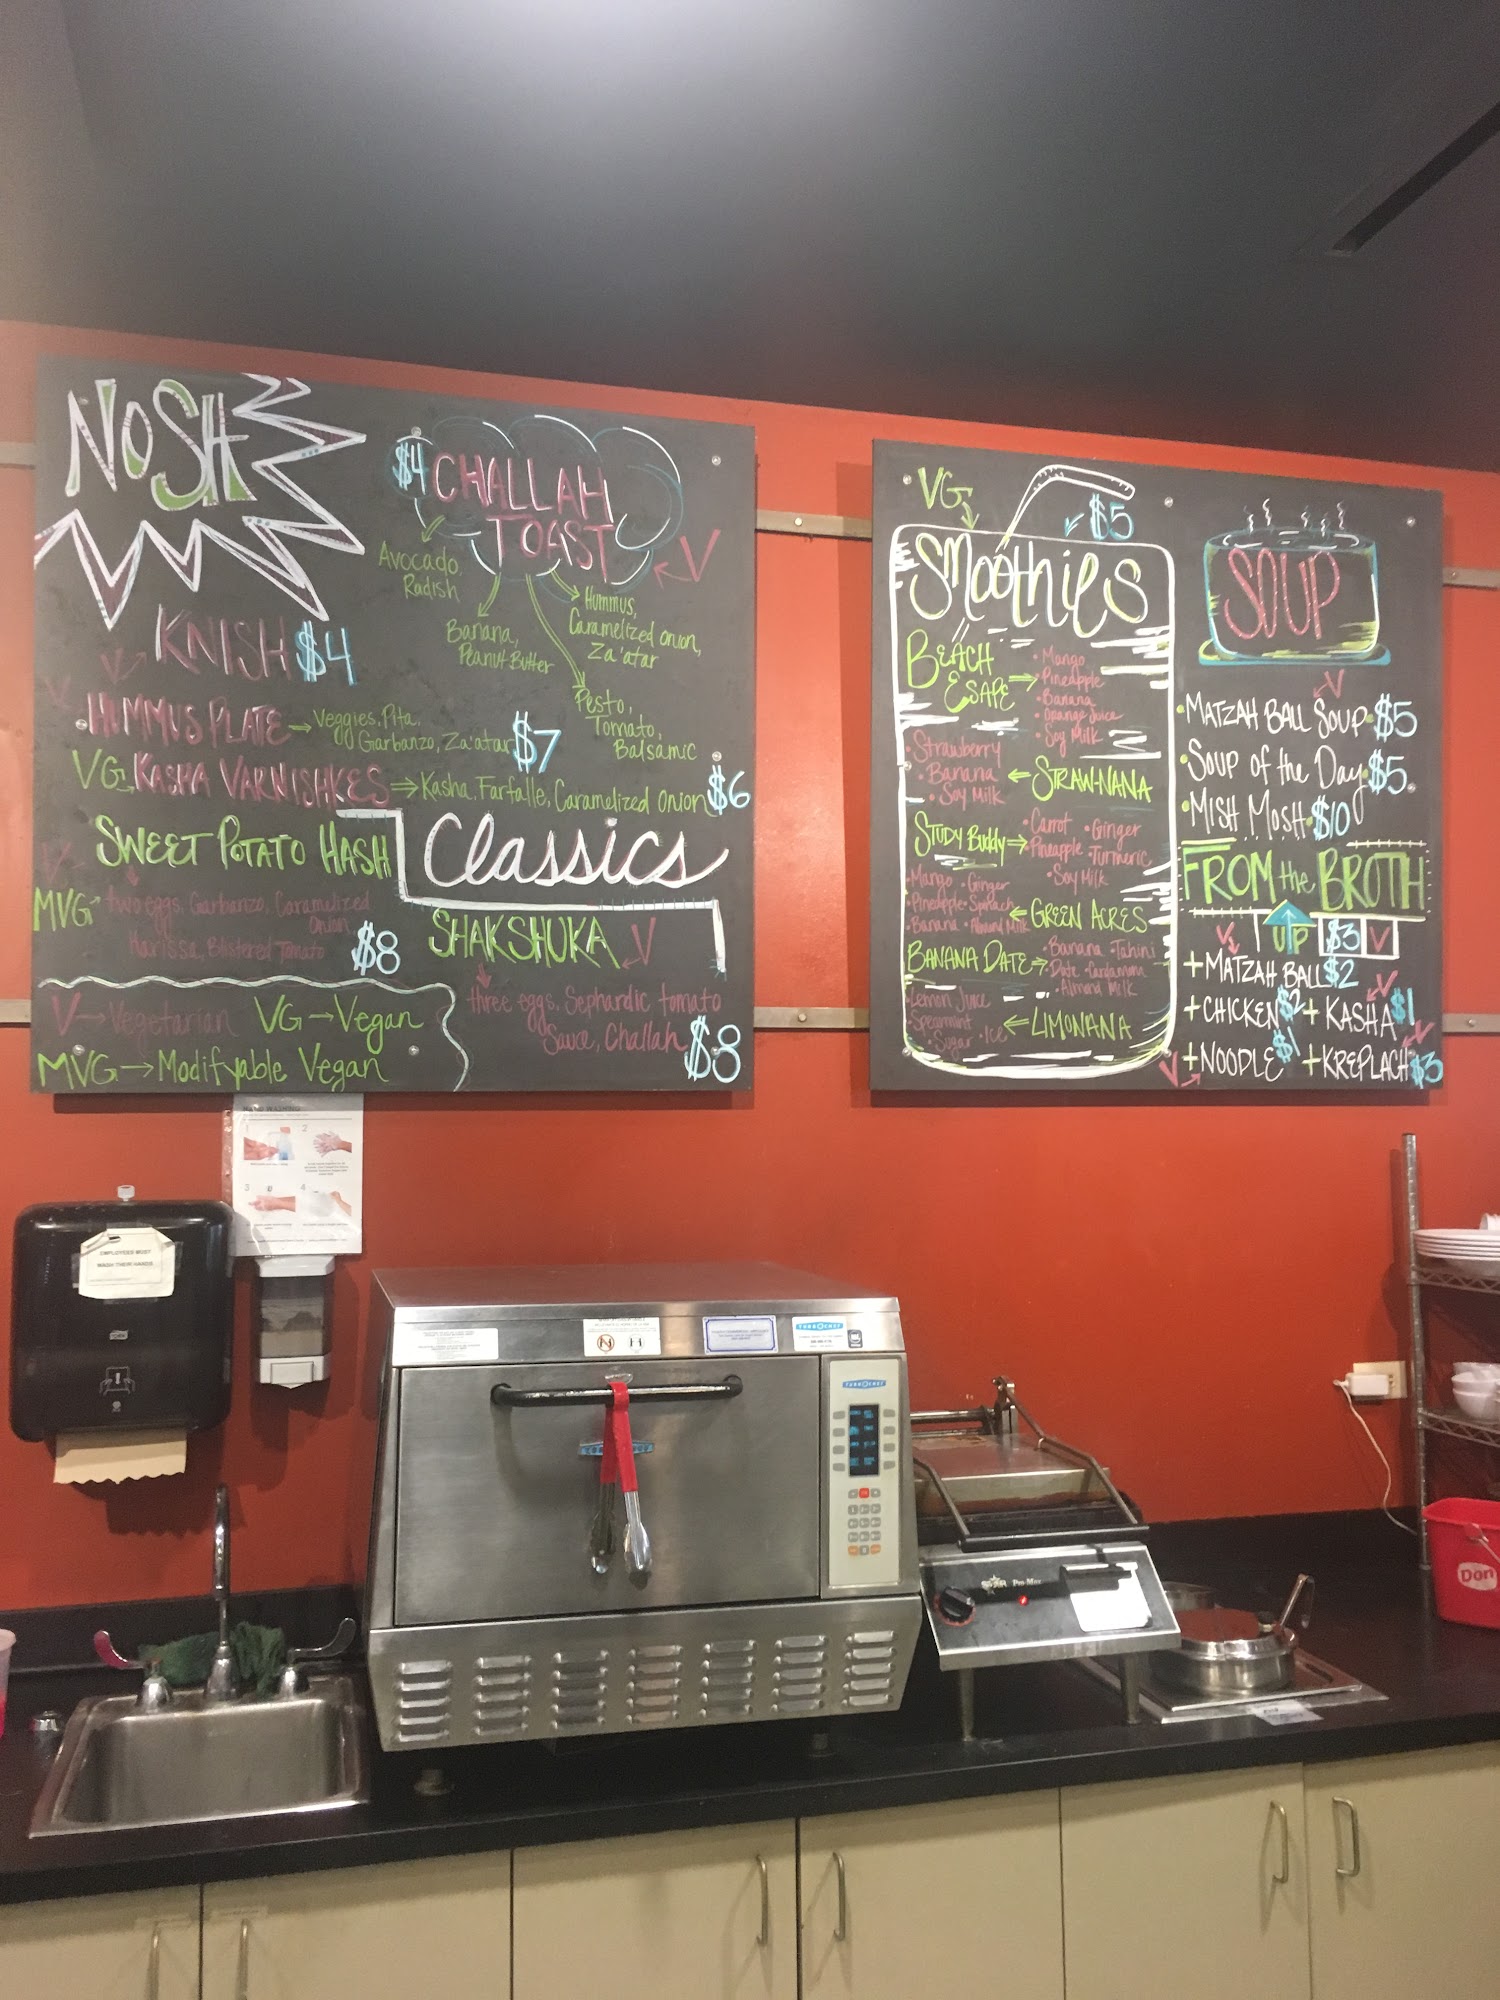 NOSH
$4 CHALLAH
TOAST
V
Avocado,
Radish
Banana,
Peanut Butter
Hummus,
Caramelized Onion,
Za'atar
Pesto,
Tomato,
Balsamic
V
KNISH $4
V
HUMMUS PLATE Veggies, Pita,
Garbanzo, Za'atar $7
VG KASHA VARNISHKES Kasha, Farfalle, Caramelized Onion $6
Classics
SWEET POTATO HASH
V
MVG two eggs, Garbanzo, Caramelized
Onion
Harissa, Blistered Tomato
$8
SHAKSHUKA V
three eggs, Sephardic tomato
Sauce, Challah $8
V Vegetarian VG Vegan
MVG Modifyable Vegan
VG
$5
SMOOTHIES
BEACH
ESAPE
• Mango
• Pineapple
• Banana
• Orange Juice
• Soy Milk
• Strawberry
• Banana
• Soy Milk
STRAW-NANA
STUDY BUDDY
• Carrot • Ginger
Pineapple • Turmeric
• Soy Milk
• Mango • Ginger
• Pineapple • Spinach
• Banana • Almond Milk
GREEN ACRES
BANANA DATE
• Banana • Tahini
• Date • Cardamom
• Almond Milk
• Lemon Juice
Spearmint
• Sugar • Ice
LIMONANA
SOUP
V
• MATZAH BALL SOUP • $5
• SOUP OF the DAY • $5
• MISH MOSH • $10
FROM the BROTH
UP $3 V
V
+ MATZAH BALL $2
+ CHICKEN $2
V
+ KASHA $1
V
+ NOODLE $1
V
+ KREPLACH $3
HAND WASHING
1
2
3
4
EMPLOYEES MUST
WASH THEIR HANDS
TORK
TURBOCHEF
TURBOCHEF
STAR Pro-Max
Don